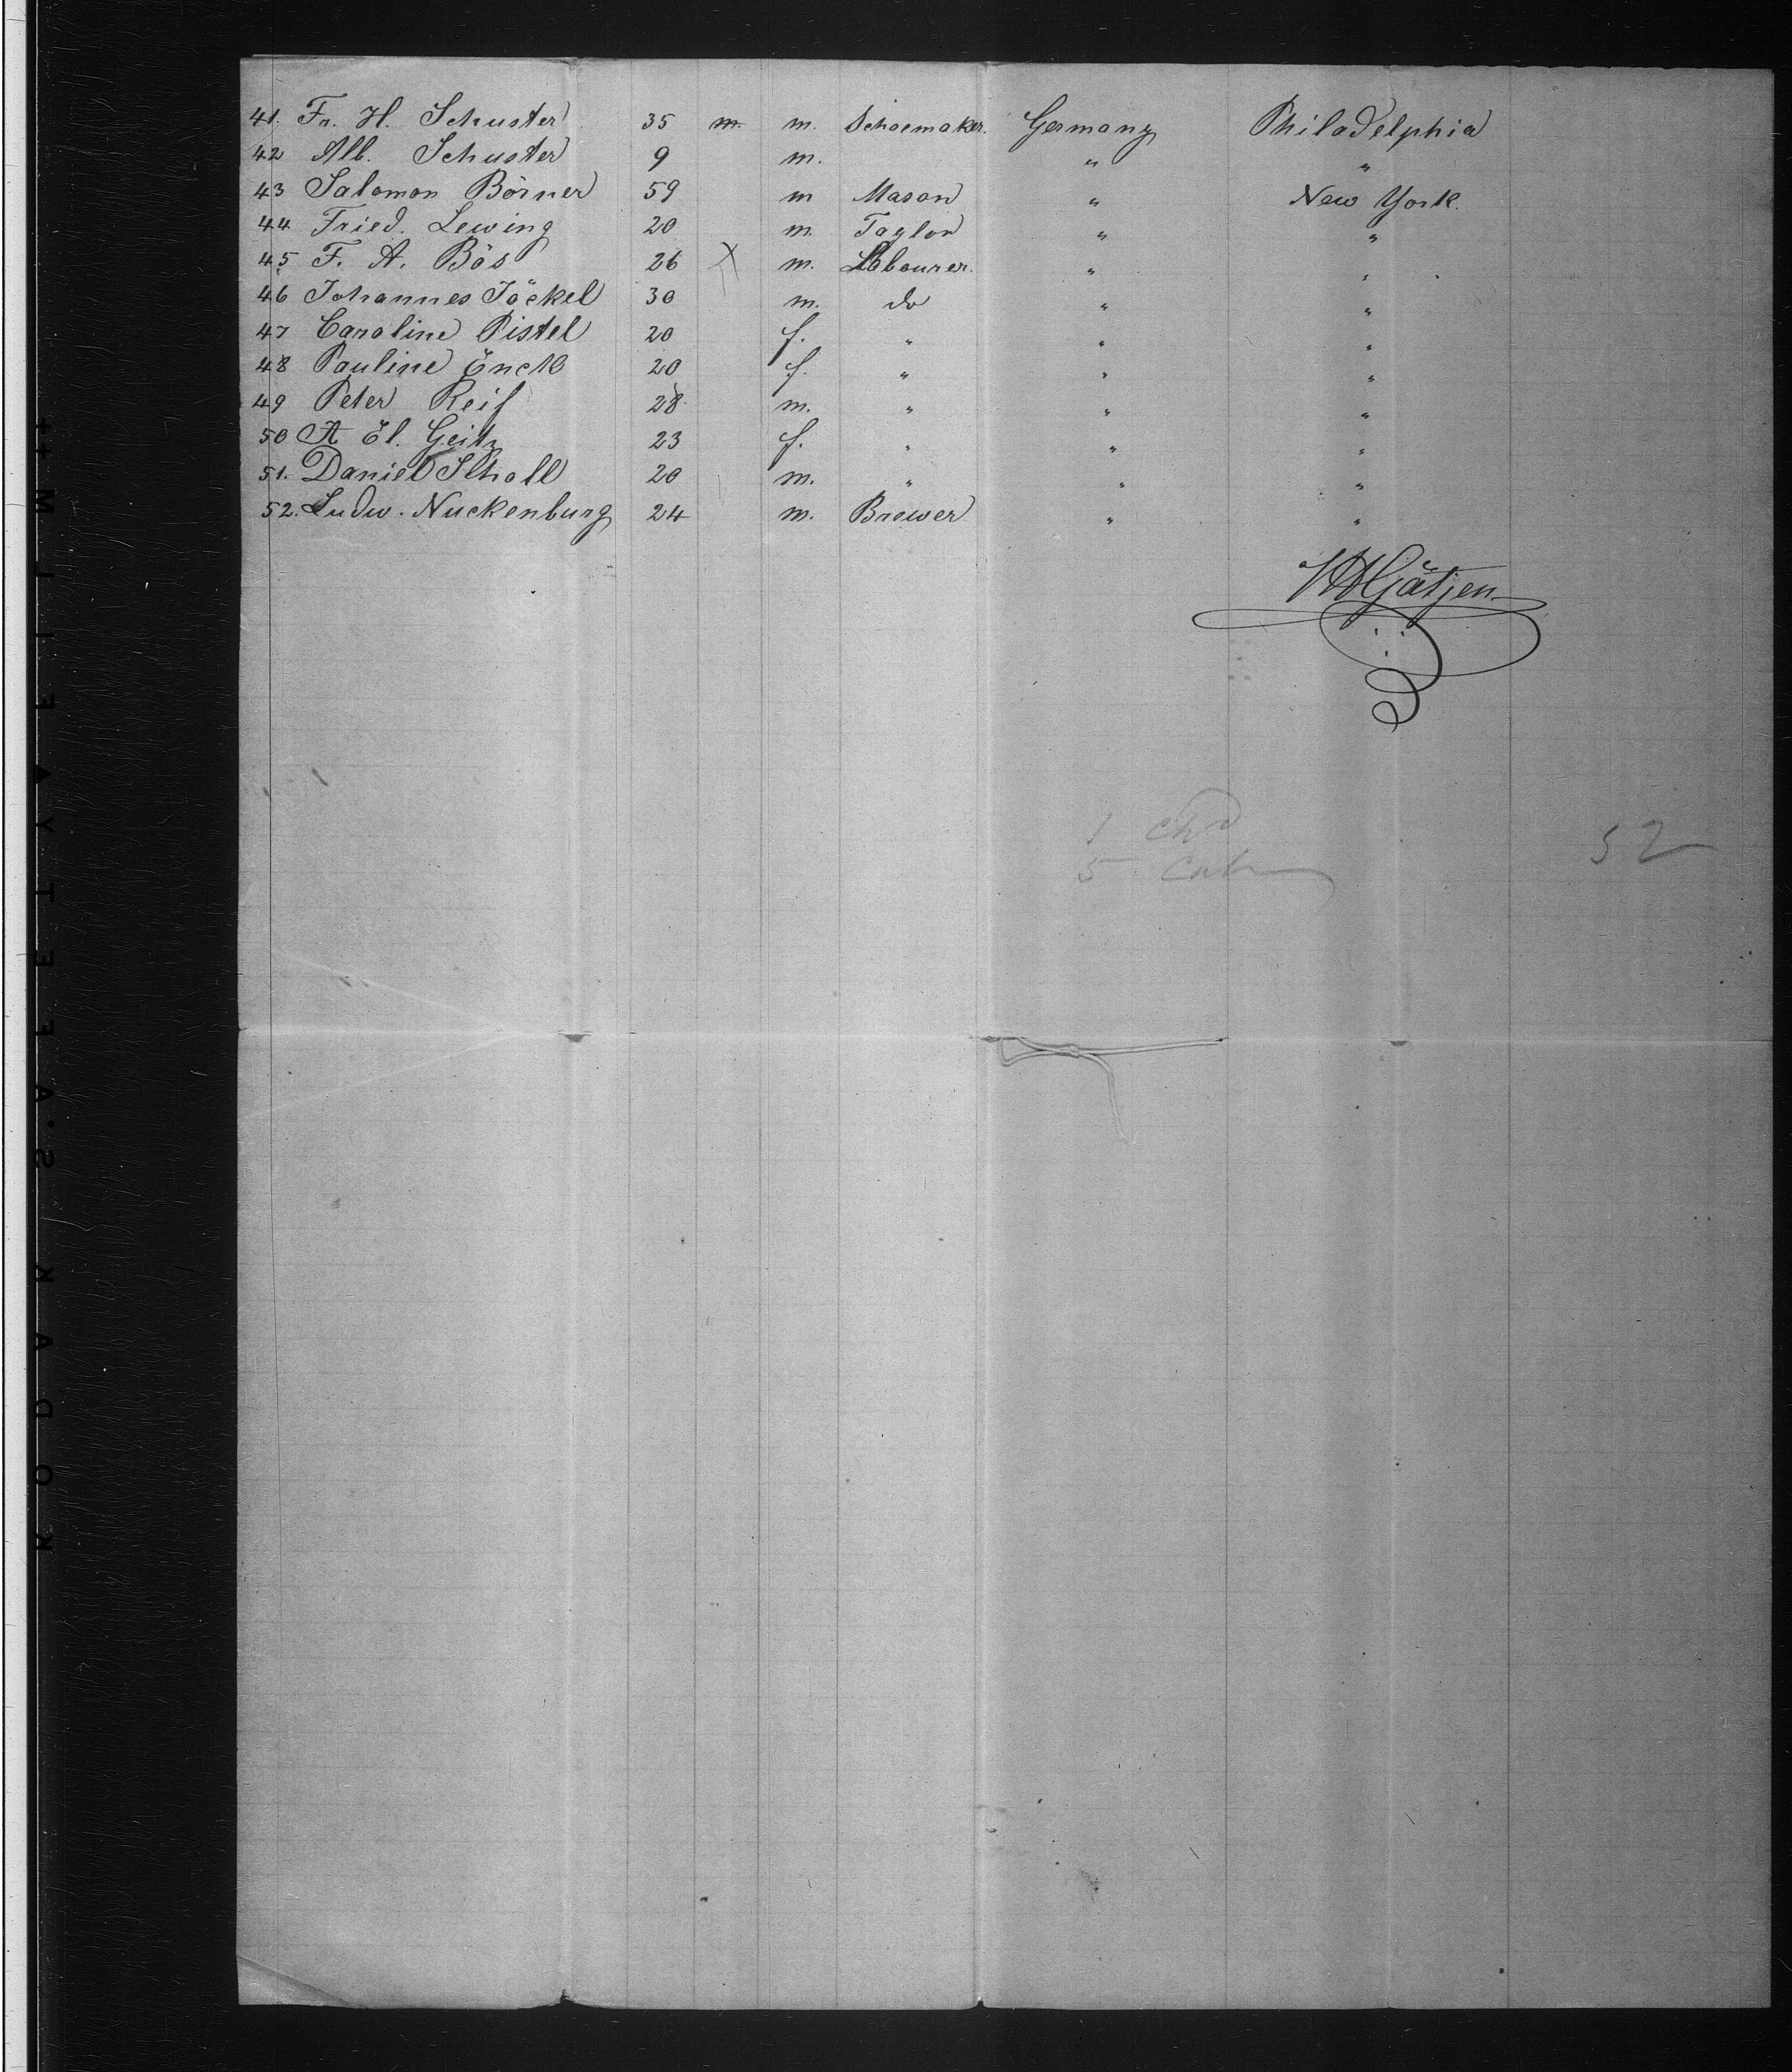 41. Fr. H. Schuster 35 m. m. Schoemaker. Germany Philadelphia
42 Alb. Schuster 9 m. " "
43 Salomon Börner 59 m Mason " New York.
44 Fried. Lewing 20 m. Taylor " "
45 F. A. Bös 26 X m. Labourer. " "
46 Johannes Jöckel 30 m. do " "
47 Caroline Pistel 20 f. " " "
48 Pauline Enck 20 f. " " "
49 Peter Reif 28 m. " " "
50 A El. Geitz 23 f. " " "
51. Daniel Scholl 20 m. " " "
52. Ludw. Nuckenburg 24 m. Brewer " "
Gätjen
1 chd
5 Cab
52
KODAK · SAFETY FILM